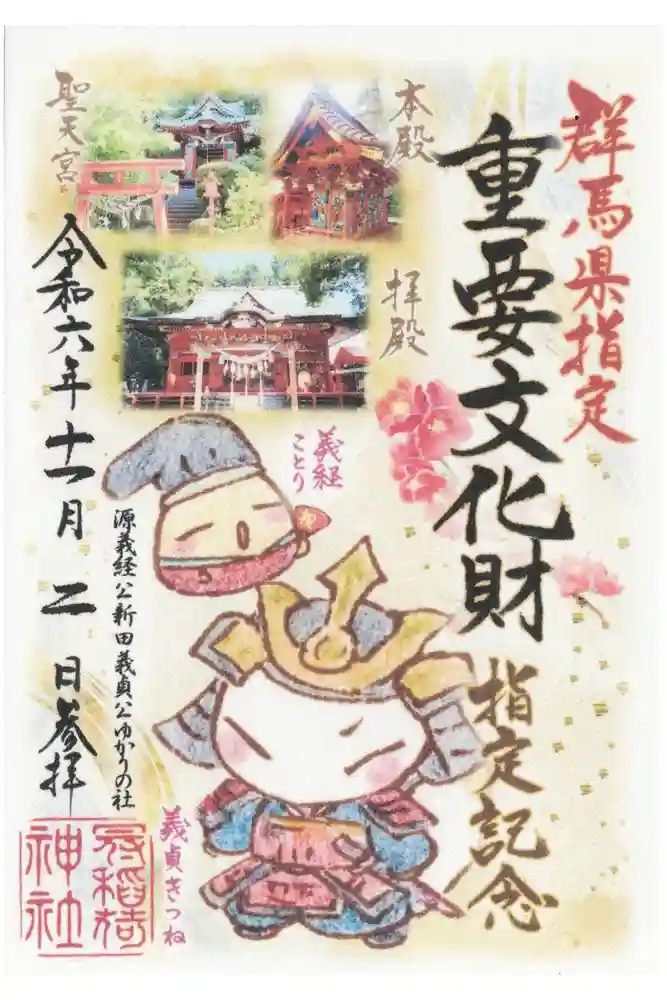 群馬県指定
重要文化財
指定記念
本殿
拝殿
聖天宮
義経
ことり
義貞きつね
源義経公新田義貞公ゆかりの社
令和六年十一月二日参拝
冠稲荷
神社